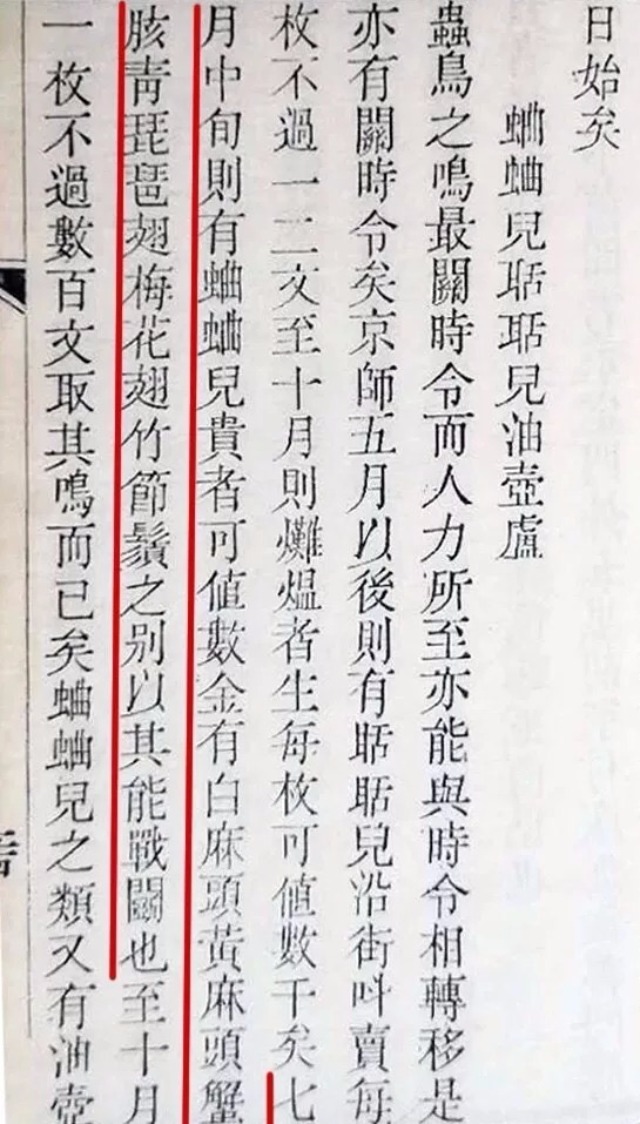 日始矣
蛐蛐兒聒聒兒油壺盧
蟲鳥之鳴最關時令而人力所至亦能與時令相轉移是
亦有關時令矣京師五月以後則有聒聒兒沿街叫賣每
枚不過一二文至十月則爦煴者生每枚可值數千矣七
月中旬則有蛐蛐兒貴者可值數金有白麻頭黃麻頭蟹
胲青琵琶翅梅花翅竹節鬚之別以其能戰鬬也至十月
一枚不過數百文取其鳴而已矣蛐蛐兒之類又有油壺